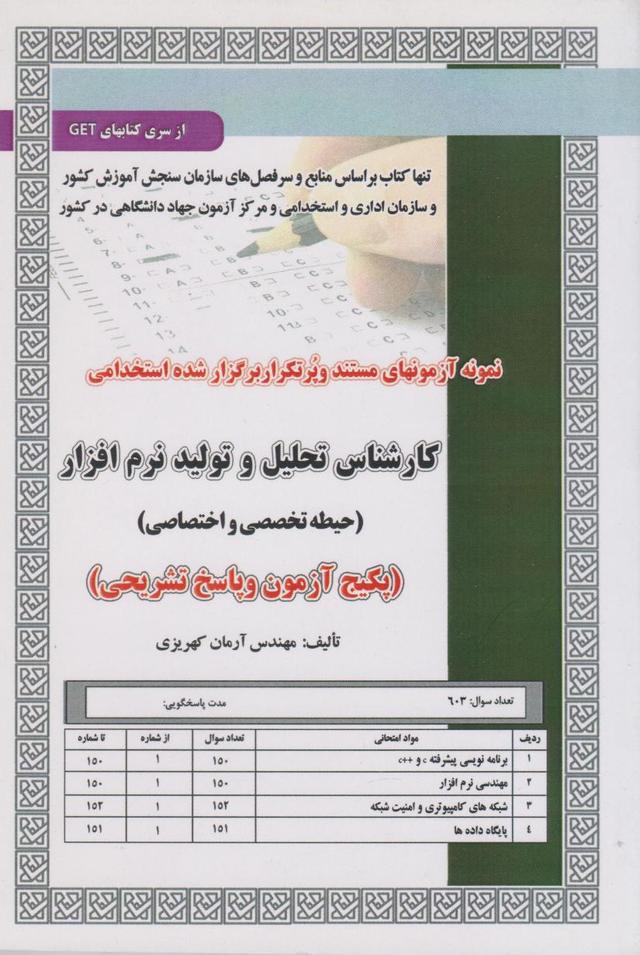 از سری کتابهای GET
تنها کتاب براساس منابع و سرفصل‌های سازمان سنجش آموزش کشور
و سازمان اداری و استخدامی و مرکز آزمون جهاد دانشگاهی در کشور
نمونه آزمونهای مستند وپُرتکراربرگزار شده استخدامی
کارشناس تحلیل و تولید نرم افزار
(حیطه تخصصی و اختصاصی)
(پکیج آزمون وپاسخ تشریحی)
تألیف: مهندس آرمان کهریزی
تعداد سوال: ۶۰۳ مدت پاسخگویی:
ردیف مواد امتحانی تعداد سوال از شماره تا شماره
۱ برنامه نویسی پیشرفته c و c++ ۱۵۰ ۱ ۱۵۰
۲ مهندسی نرم افزار ۱۵۰ ۱ ۱۵۰
۳ شبکه های کامپیوتری و امنیت شبکه ۱۵۲ ۱ ۱۵۲
۴ پایگاه داده ها ۱۵۱ ۱ ۱۵۱